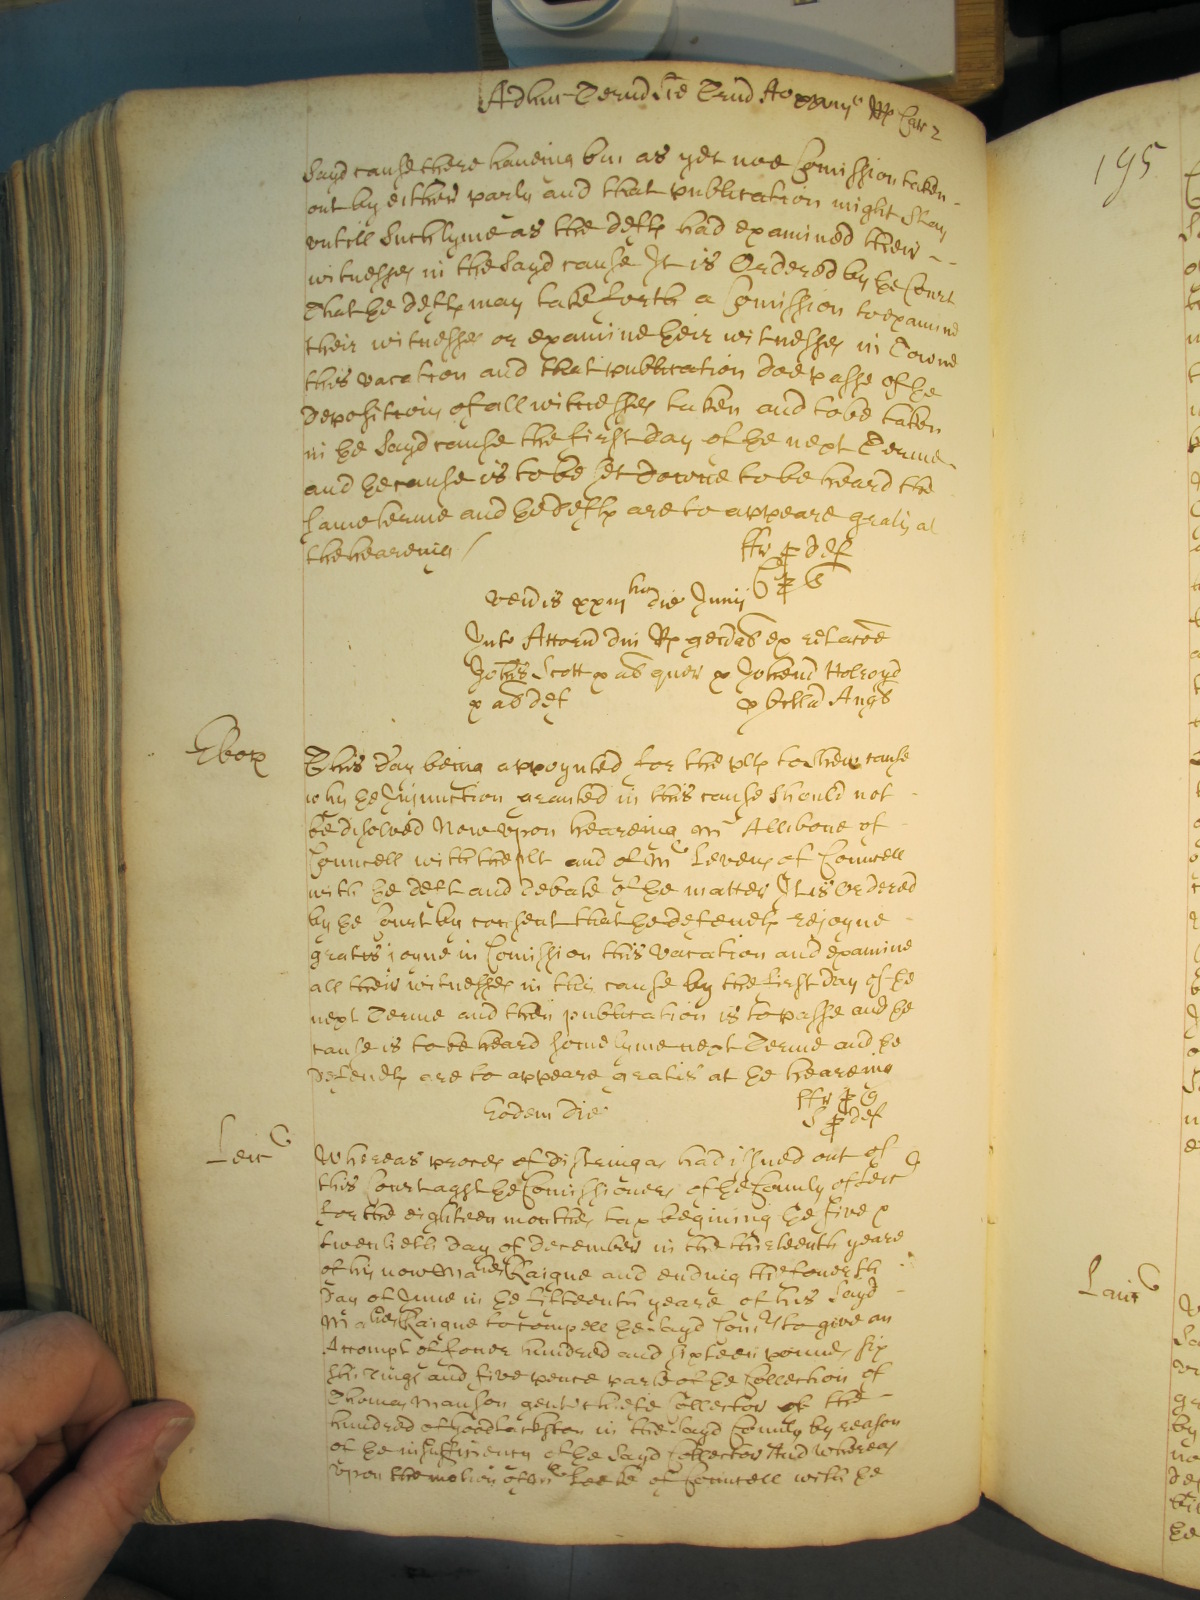 Adhuc Termĩ Sc̃e Trinĩ Ao xxviijo Rs Car 2
Sayd cause there haveing bin as yet noe Comission taken
out by either party and that publication might Stay
untill Such tyme as the defts had examined their
witnesses in the Sayd cause It is Ordered by ye Court
That ye defts may take forth a Comission to examine
their witnesses or examine yeir witnesses in Towne
this vacation and that publication doe passe of ye
depositions of all witnesses taken and to be taken
in ye Sayd cause the first day of ye next Terme
and ye cause is to be Set downe to be heard the
Same terme and ye defts are to appeare gratis at
the heareing
ffr p def
p Q
Ven̄is xxiij die Junij
Inter Attorñ dñi Rs geñal ex relac̃oe
Joh̃is Scott p al quer p Johem̃ Holroyd
p al def p billã Angl
Ebor
This day being appoynted for the plts to shew cause
why ye Injunction granted in this cause Should not
be disolved Now upon heareing Mr Allibone of
Councell with the plt and of Mr Levens of Councell
with ye deft and debate of ye matter It is Ordered
by ye Court by consent that ye defendts rejoyne
gratis joyne in Comission this vacation and examine
all their witnesses in this cause by the first day of ye
next Terme and then publication is to passe and ye
cause is to be heard some tyme next Terme and ye
defendts are to appeare gratis at ye heareing
Eodem die
ffr p Q
S p def
Leic
Whereas proces of distringas had issued out of
this Court agst ye Comissioners of ye County of Leic
for the eighteen monthes tax begining ye five &
twentieth day of December in the thirteenth yeare
of his now Maties Raigne and ending the fowerth
day of June in ye fifteenth yeare of his Sayd
Maties Raigne to compell ye Sayd Comrs to give an
Accompt of fower hundred and sixteen pounds six
shillings and five pence parte of ye Collection of
Thomas Manson gent cheife Collector of the
hundred of Goodlackston in the Sayd County by reason
of ye insufficiency of ye Sayd Collector And whereas
upon the motion of Mr Locke of Councell with ye
195
Lanc